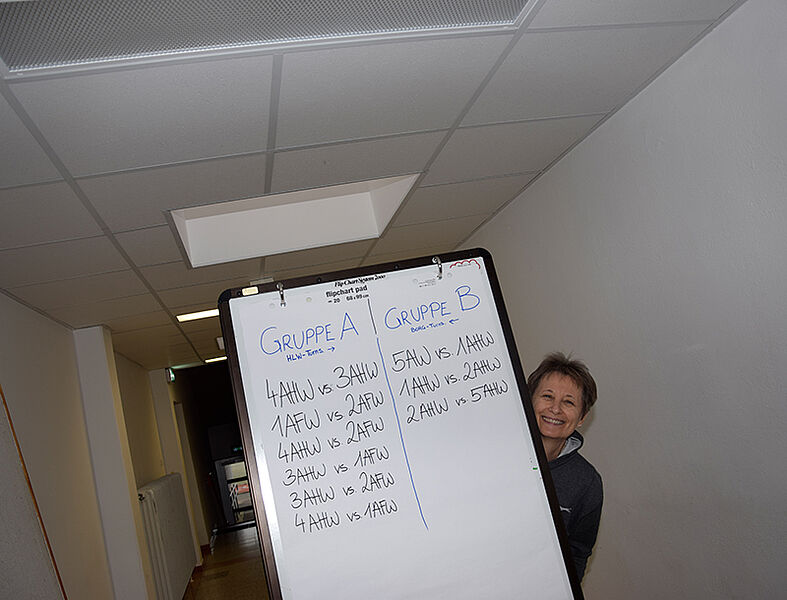 Flip-Chart System 2000
flipchart pad
20 68x99 cm
GRUPPE A
HLW-Turns. →
4AHW vs. 3AHW
1AFW vs. 2AFW
4AHW vs. 2AFW
3AHW vs. 1AFW
3AHW vs. 2AFW
4AHW vs. 1AFW
GRUPPE B
BORG-Turns. ←
5AW vs. 1AHW
1AHW vs. 2AHW
2AHW vs. 5AHW